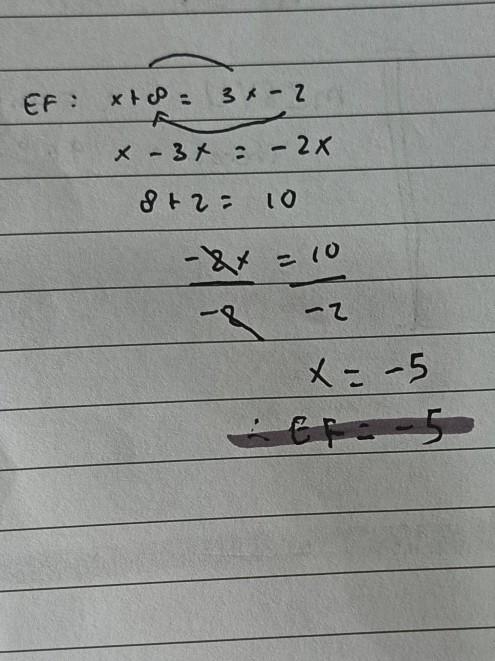 EF: x+8 = 3x - 2
x - 3x = - 2x
8 + 2 = 10
-2x = 10
-2 -2
x = -5
∴ EF = -5